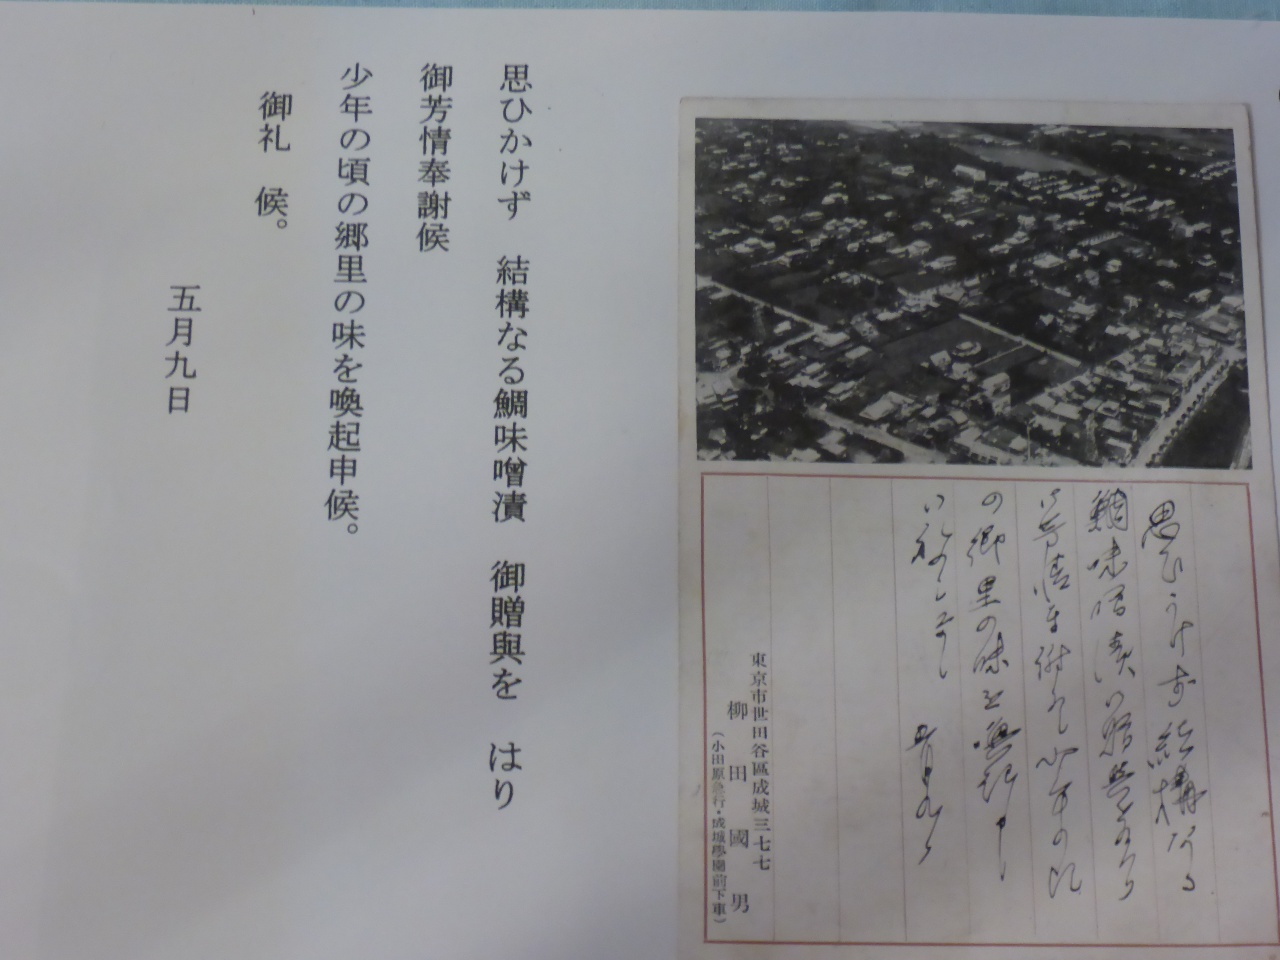 思ひうけず結構なる
鯛味噌漬御贈與を
御芳情奉謝候 少年の頃
の郷里の味を喚起申候
御礼
五月九日
東京市世田谷區成城三七七
柳田國男
(小田原急行・成城學園前下車)
思ひかけず 結構なる鯛味噌漬 御贈與を はり
御芳情奉謝候
少年の頃の郷里の味を喚起申候。
御礼 候。
五月九日